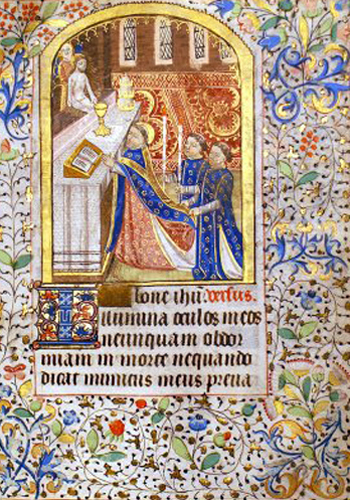 O bone ihū. Versus.
Illumina oculos meos
ne unquam obdor
miam in morte nequando
dicat inimicus meus preua